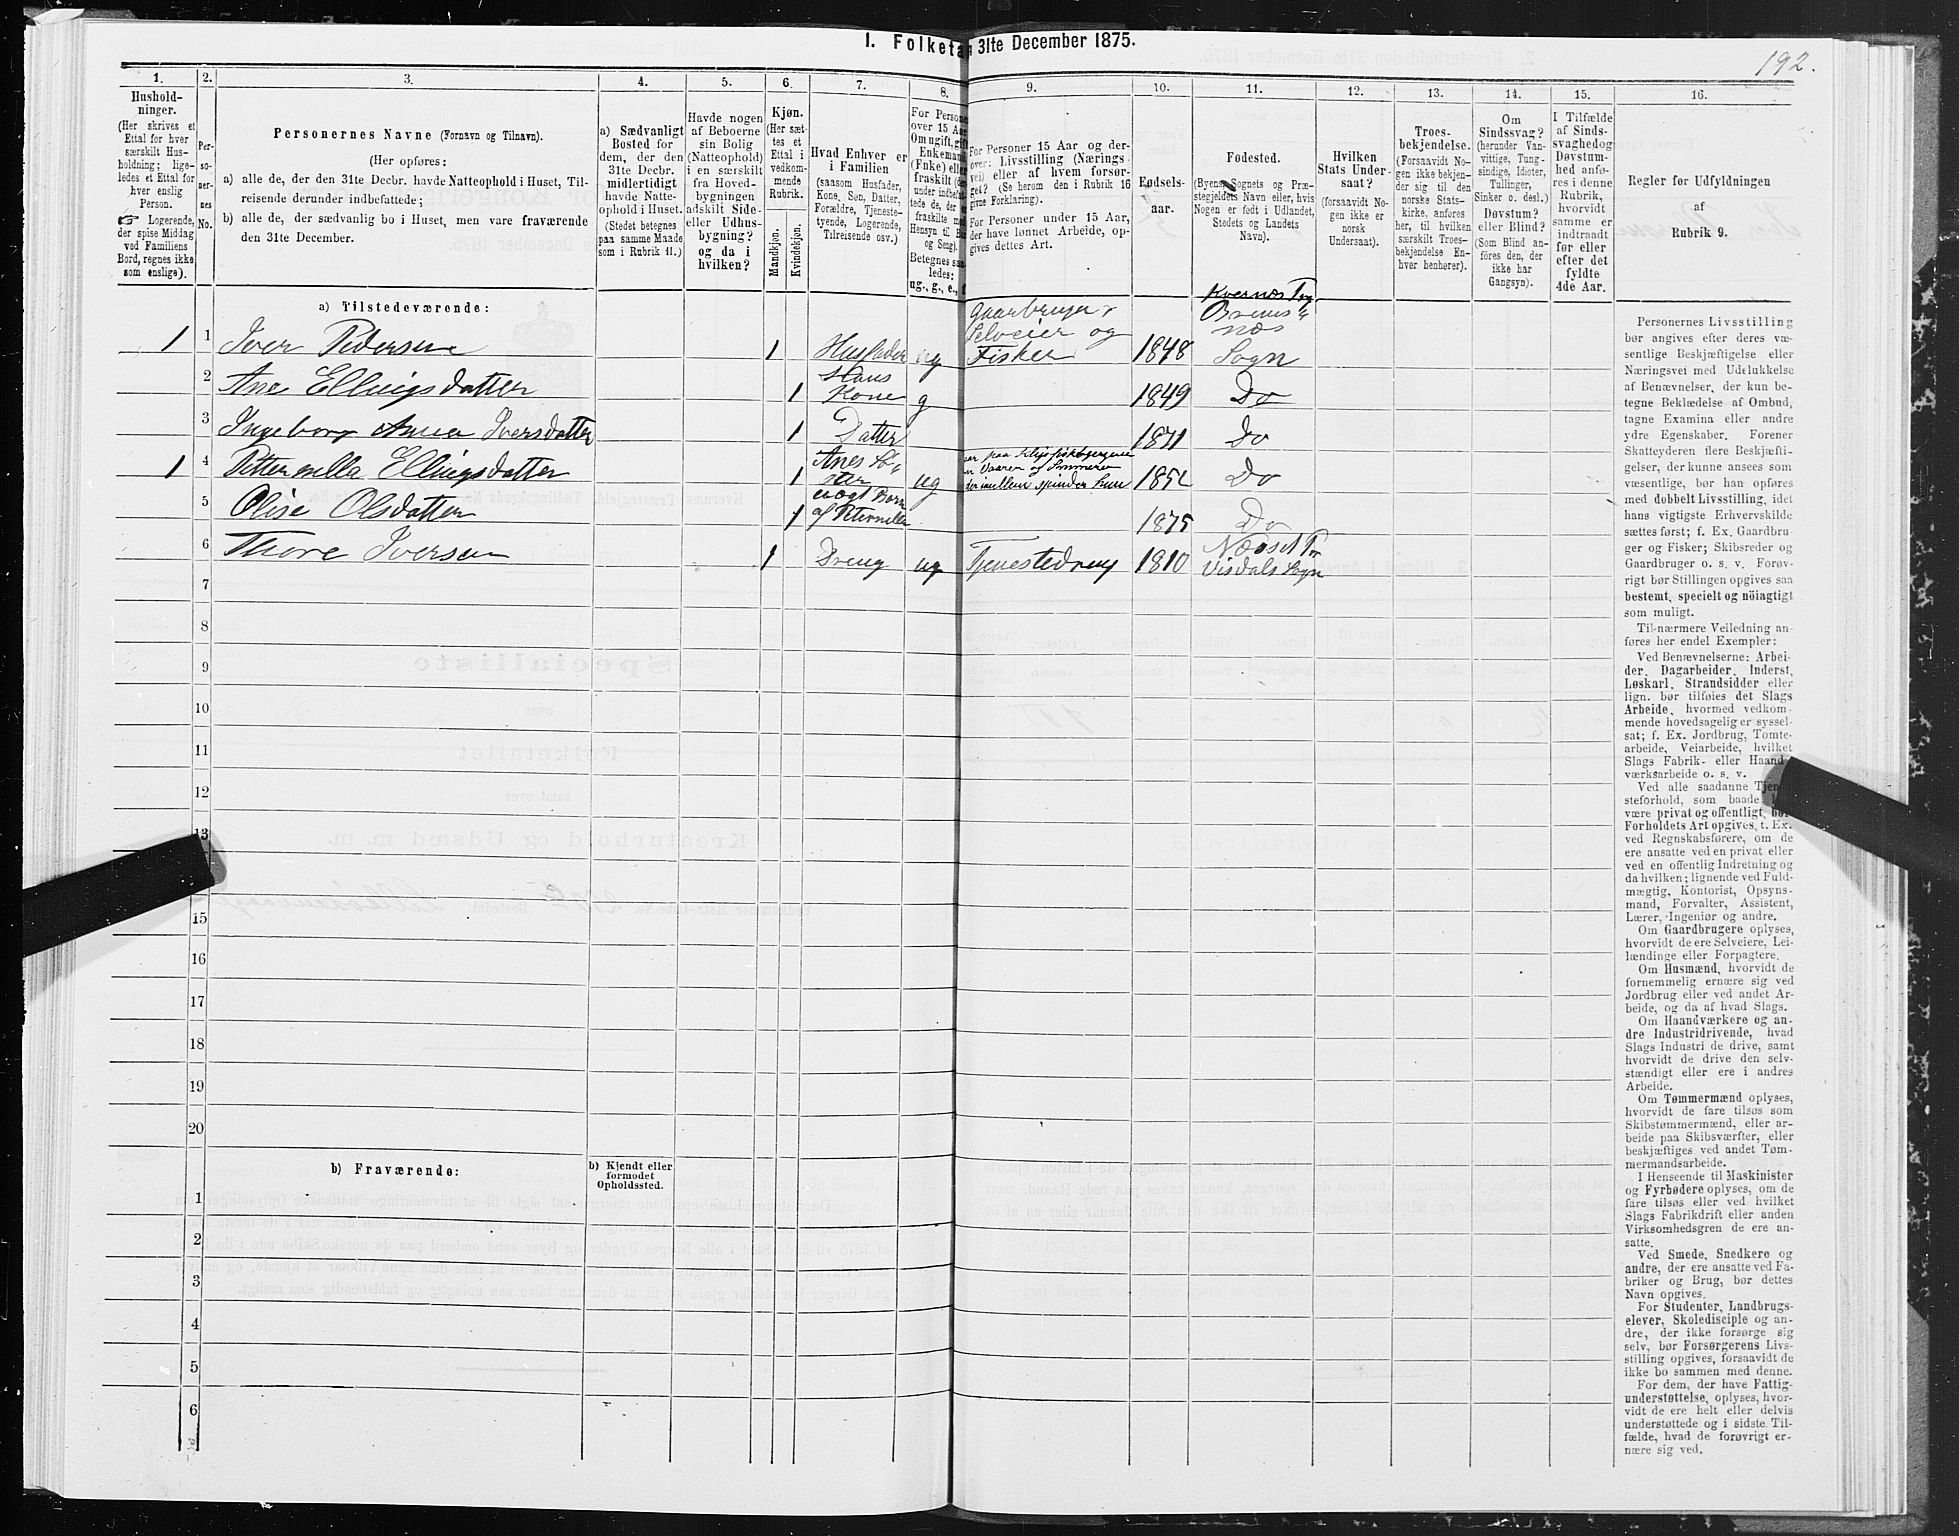 1. Folketa 31te December 1875.
192.
1. 2. 3. 4. 5. 6. 7. 8. 9. 10. 11. 12. 13. 14. 15. 16.
Hushold-
ninger.
(Her skrives et
Ettal for hver
særskilt Hus-
holdning; lige-
ledes et Ettal for
hver enslig
Person.
Logerende,
der spise Middag
ved Familiens
Bord, regnes ikke
som enslige).
Per-
so-
ner-
nes
No.
Personernes Navne (Fornavn og Tilnavn).
(Her opføres:
a) alle de, der den 31te Decbr. havde Natteophold i Huset, Til-
reisende derunder indbefattede;
b) alle de, der sædvanlig bo i Huset, men vare fraværende
den 31te December.
a) Sædvanligt
Bosted for
dem, der den
31te Decbr.
midlertidigt
havde Natte-
ophold i Huset.
(Stedet betegnes
paa samme Maade
som i Rubrik 11.)
Havde nogen
af Beboerne
sin Bolig
(Natteophold)
i en særskilt
fra Hoved-
bygningen
adskilt Side-
eller Udhus-
bygning?
og da i
hvilken?
Kjøn.
(Her sæt-
tes et
Ettal i
vedkom-
mende
Rubrik.
Mandkjøn.
Kvindekjøn.
Hvad Enhver er
i Familien
(saasom Husfader,
Kone, Søn, Datter,
Forældre, Tjeneste-
tyende, Logerende,
Tilreisende osv.)
For Persone
over 15 Aar
Om ugift, gift
Enkemand
(Enke) elle
fraskilt (de
under indbefat-
tede de, der e
fraskilte med
Hensyn til Bo
og Seng).
Betegnes saa-
ledes:
ug., g., e., f
For Personer 15 Aar og der-
over: Livsstilling (Nærings-
vei) eller af hvem forsør-
get? (Se herom den i Rubrik 16
givne Forklaring).
For Personer under 15 Aar,
der have lønnet Arbeide, op-
gives dettes Art.
Fødsels-
aar.
Fødested.
(Byens, Sognets og Præ-
stegjeldets Navn eller, hvis
Nogen er født i Udlandet,
Stedets og Landets
Navn).
Hvilken
Stats Under-
saat?
(forsaavidt No-
gen ikke er
norsk
Undersaat).
Troes-
bekjendelse.
(Forsaavidt No-
gen ikke bekjen-
der sig til den
norske Stats-
kirke, anføres
her, til hvilken
særskilt Troes-
bekjendelse En-
hver henhører).
Om
Sindssvag?
(herunder Van-
vittige, Tung-
sindige, Idioter,
Tullinger,
Sinker o. desl.)
Døvstum?
eller Blind?
(Som Blind an-
føres den, der
ikke har
Gangsyn).
I Tilfælde
af Sinds-
svaghedog
Døvstum-
hed anfø-
res i denne
Rubrik,
hvorvidt
samme er
indtraadt
før eller
efter det
fyldte
4de Aar.
Regler for Udfyldningen
af
Rubrik 9.
a) Tilstedeværende:
1 1 Iver Pedersen 1 Husfader ug Gaarbruger Selveier og Fisker 1848 Kvernæs Præ Bremsnæs Sogn
2 Ane Ellingsdatter 1 Hans Kone g 1849 Do
3 Ingeborg Anna Iversdatter 1 Datter 1871 Do
1 4 Ellingsdatter 1 Anes Søster ug 1852 Do
5 Olise Olsdatter 1 uægt Barn af 1875 Do
6 Thore Iversen 1 Dreng ug Tjenestedreng 1810 Næsset Pr Visdals Sogn
7
8
9
10
11
12
13
15
16
17
18
19
20
b) Fraværende:
b) Kjendt eller
formodet
Opholdssted.
1
2
3
4
5
6
Personernes Livsstilling
bør angives efter deres væ-
sentlige Beskjæftigelse eller
Næringsvei med Udelukkelse
af Benævnelser, der kun be-
tegne Beklædelse af Ombud,
tagne Examina eller andre
ydre Egenskaber. Forener
Skatteyderen flere Beskjæfti-
gelser, der kunne ansees som
væsentlige, bør han opføres
med dobbelt Livsstilling, idet
hans vigtigste Erhvervskilde
sættes først; f. Ex. Gaardbru-
ger og Fisker; Skibsreder og
Gaardbruger o. s. v. Forøv-
rigt bør Stillingen opgives saa
bestemt, specielt og nöiagtigt
som muligt.
Til nærmere Veiledning an-
føres her endel Exempler:
Ved Benævnelserne: Arbei-
der, Dagarbeider, Inderst,
Løskarl, Strandsidder eller
lign. bør tilføies det Slags
Arbeide, hvormed vedkom-
mende hovedsagelig er syssel-
sat; f. Ex. Jordbrug, Tomte-
arbeide, Veiarbeide, hvilket
Slags Fabrik- eller Haand-
værksarbeide o. s. v.
Ved alle saadanne Tjene-
steforhold, som baade
være privat og offentligt, bør
Forholdets Art opgives, t. Ex.
ved Regnskabsførere, om de
ere ansatte ved en privat eller
ved en offentlig Indretning og
da hvilken; lignende ved Fuld-
mægtig, Kontorist, Opsyns-
mand, Forvalter, Assistent,
Lærer, Ingeniør og andre.
Om Gaardbrugere oplyses,
hvorvidt de ere Selveiere, Lei-
lændinge eller Forpagtere.
Om Husmænd, hvorvidt de
fornemmelig ernære sig ved
Jordbrug eller ved andet Ar-
beide, og da af hvad Slags.
Om Haandværkere og an-
dre Industridrivende, hvad
Slags Industri de drive, samt
hvorvidt de drive den selv-
stændigt eller ere i andres
Arbeide.
Om Tømmermænd oplyses,
hvorvidt de fare tilsøs som
Skibstømmermænd, eller ar-
beide paa Skibsværfter, eller
beskjæftiges ved andet Tøm-
mermandsarbeide.
I Henseende til Maskinister
og Fyrbødere oplyses, om de
fare tilsøs eller ved hvilket
Slags Fabrikdrift eller anden
Virksomhedsgren de ere an-
satte.
Ved Smede, Snedkere og
andre, der ere ansatte ved Fa-
briker og Brug, bør dettes
Navn opgives.
For Studenter, Landbrugs-
elever, Skoledisciple og an-
dre, der ikke forsørge sig
selv, bør Forsørgerens Livs-
stilling opgives, forsaavidt de
ikke bo sammen med denne.
For dem, der have Fattig-
understøttelse, oplyses, hvor-
vidt de ere helt eller delvis
understøttede og i sidste Til-
fælde, hvad de forøvrigt er-
nære sig ved.